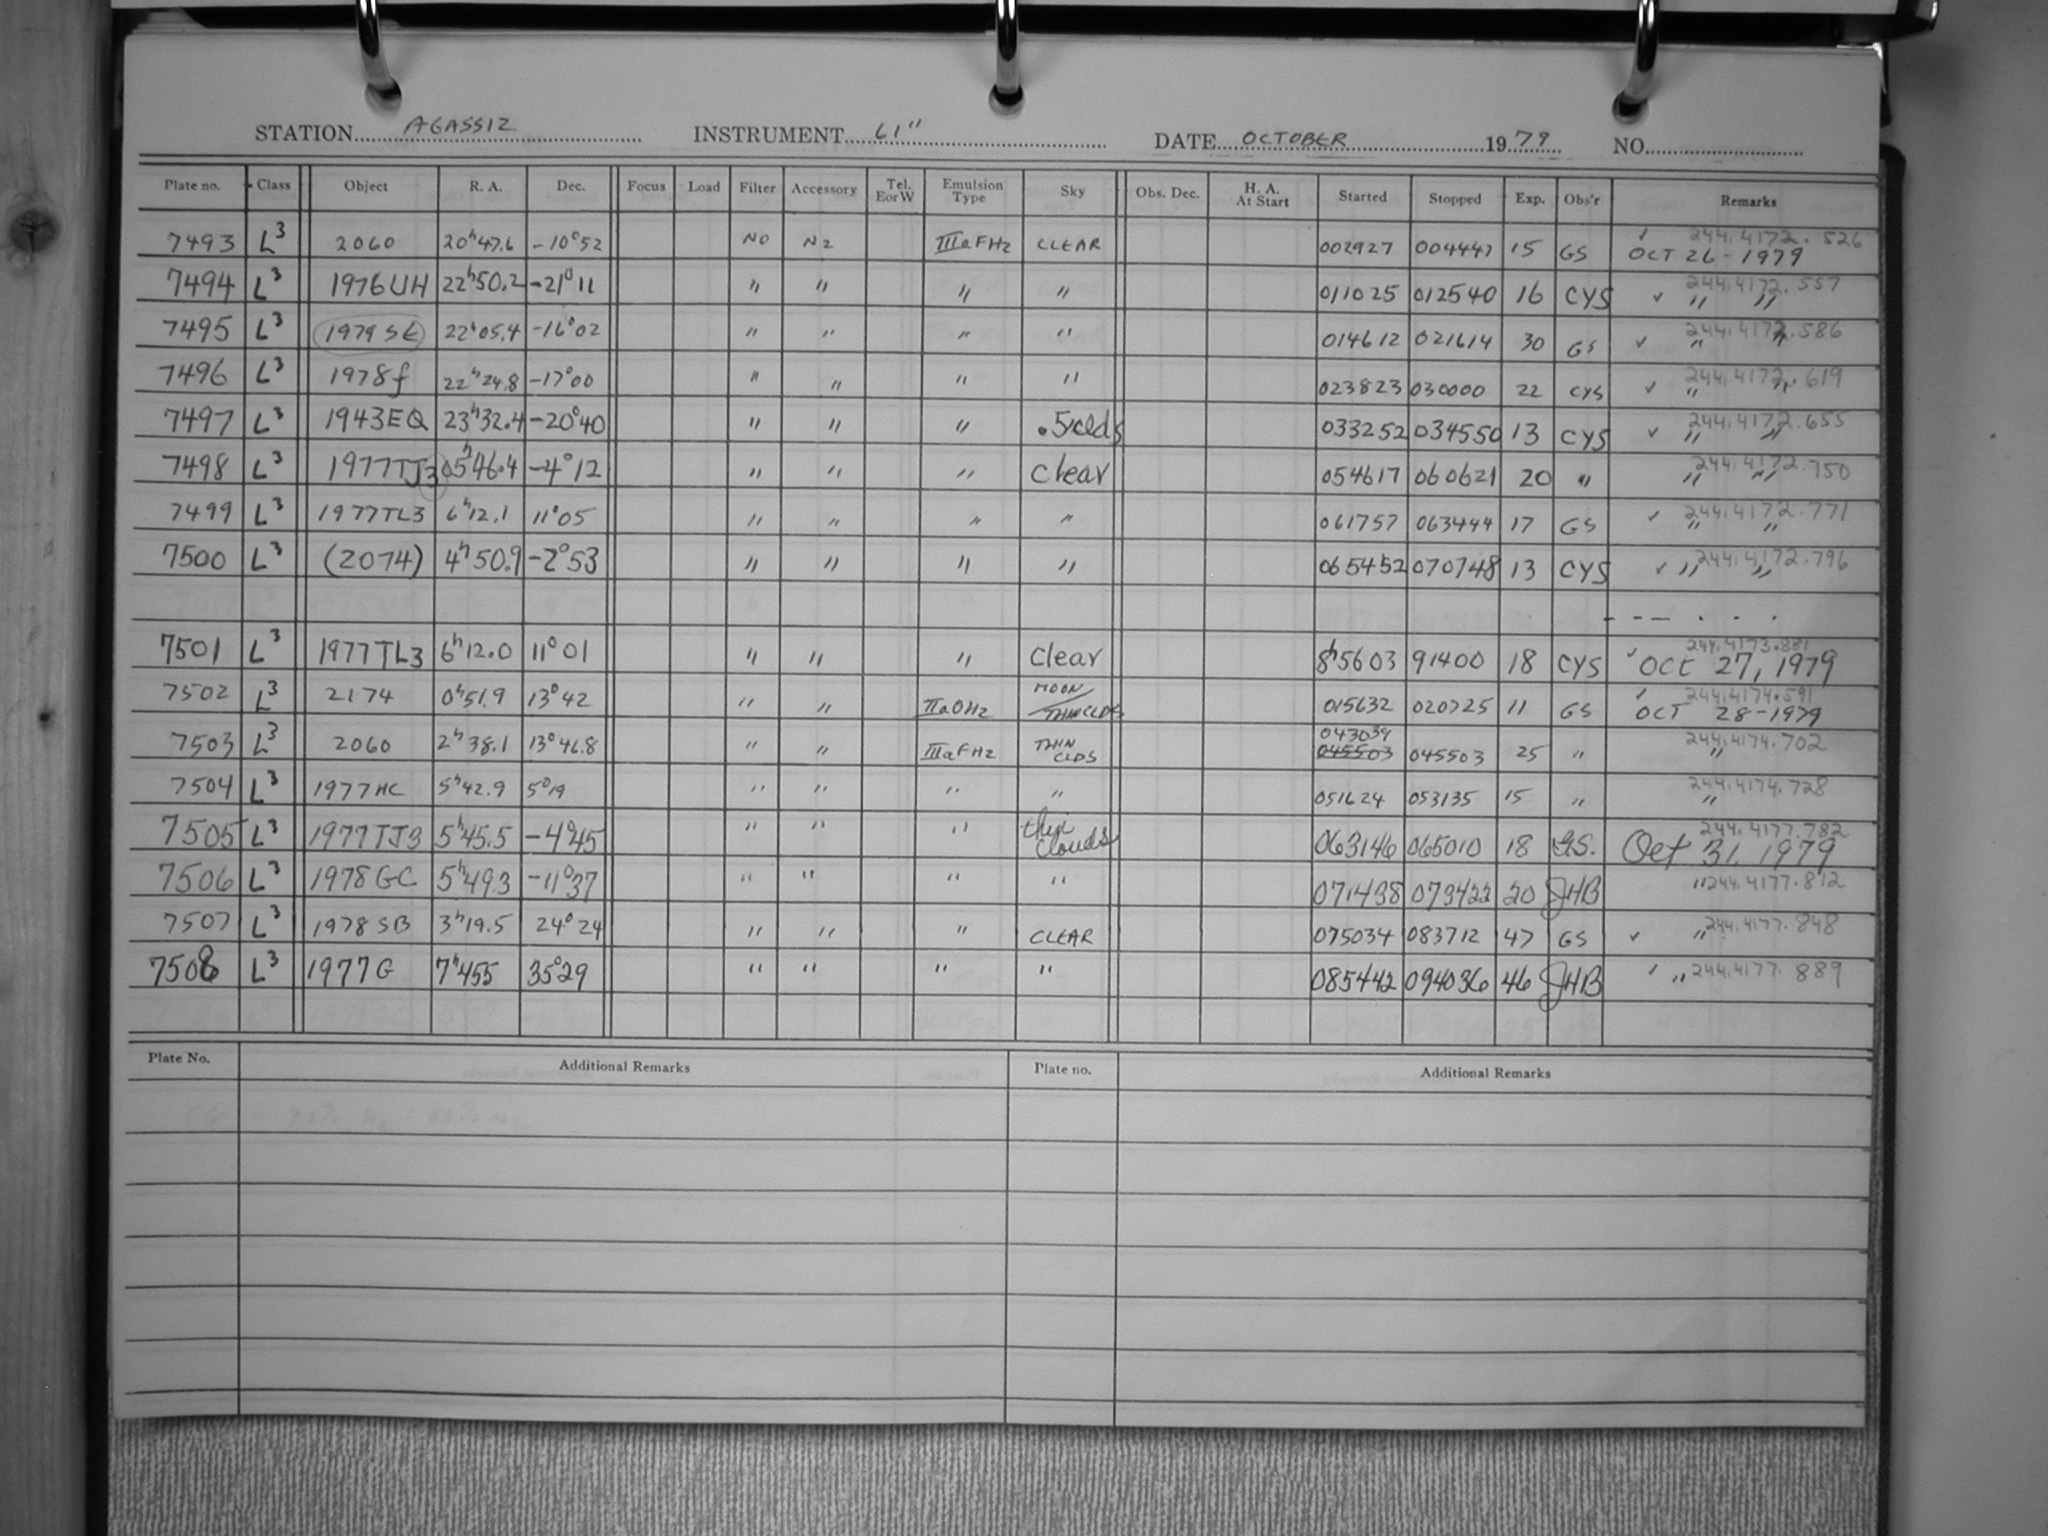 STATION AGASSIZ INSTRUMENT 61" DATE OCTOBER 1979 NO.
Plate no. Class Object R. A. Dec. Focus Load Filter Accessory Tel. E or W Emulsion Type Sky Obs. Dec. H. A. At Start Started Stopped Exp. Obs'r Remarks
7493 L³ 2060 20ʰ47.6 -10°52 NO N2 IIIaFH2 CLEAR 002927 004447 15 GS ✓ 244.4172.526 OCT 26-1979
7494 L³ 1976UH 22ʰ50.2 -21°11 " " " " 011025 012540 16 CYS ✓ " 244.4172.557 "
7495 L³ 1979SE 22ʰ05.4 -16°02 " " " " 014612 021614 30 GS ✓ " 244.4172.586 "
7496 L³ 1978f 22ʰ24.8 -17°00 " " " " 023823 030000 22 CYS ✓ " 244.4172.619 "
7497 L³ 1943EQ 23ʰ32.4 -20°40 " " " .5clds 033252 034550 13 CYS ✓ " 244.4172.655 "
7498 L³ 1977TJ3 05ʰ46.4 -4°12 " " " Clear 054617 060621 20 " " 244.4172.750 "
7499 L³ 1977TL3 6ʰ12.1 11°05 " " " " 061757 063444 17 GS ✓ " 244.4172.771 "
7500 L³ (2074) 4ʰ50.9 -2°53 " " " " 065452 070748 13 CYS ✓ " 244.4172.796 "
7501 L³ 1977TL3 6ʰ12.0 11°01 " " " Clear 8ʰ5603 91400 18 CYS ✓ 244.4173.881 OCT 27, 1979
7502 L³ 2174 0ʰ51.9 13°42 " " IIaOH2 MOON/THIN CLDS 015632 020725 11 GS ✓ 244.4174.591 OCT 28-1979
7503 L³ 2060 2ʰ38.1 13°46.8 " " IIIaFH2 THIN CLDS 043039 045503 045503 25 " " 244.4174.702
7504 L³ 1977HC 5ʰ42.9 5°19 " " " " 051624 053135 15 " " 244.4174.728
7505 L³ 1977TJ3 5ʰ45.5 -4°45 " " " thin clouds 063146 065010 18 G.S. 244.4177.782 Oct 31, 1979
7506 L³ 1978GC 5ʰ49.3 -11°37 " " " " 071438 073422 20 JHB " 244.4177.812
7507 L³ 1978SB 3ʰ19.5 24°24 " " " CLEAR 075034 083712 47 GS ✓ " 244.4177.848
7508 L³ 1977G 7ʰ455 35°29 " " " " 085442 094036 46 JHB ✓ " 244.4177.889
Plate No. Additional Remarks Plate no. Additional Remarks